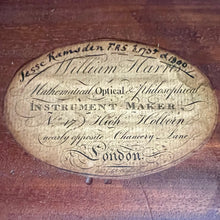 Jesse Ramsden FRS 1735 1800
William Harris
Mathematical, Optical & Philosophical
INSTRUMENT MAKER
No. 47 High Holborn
nearly opposite Chancery Lane
London